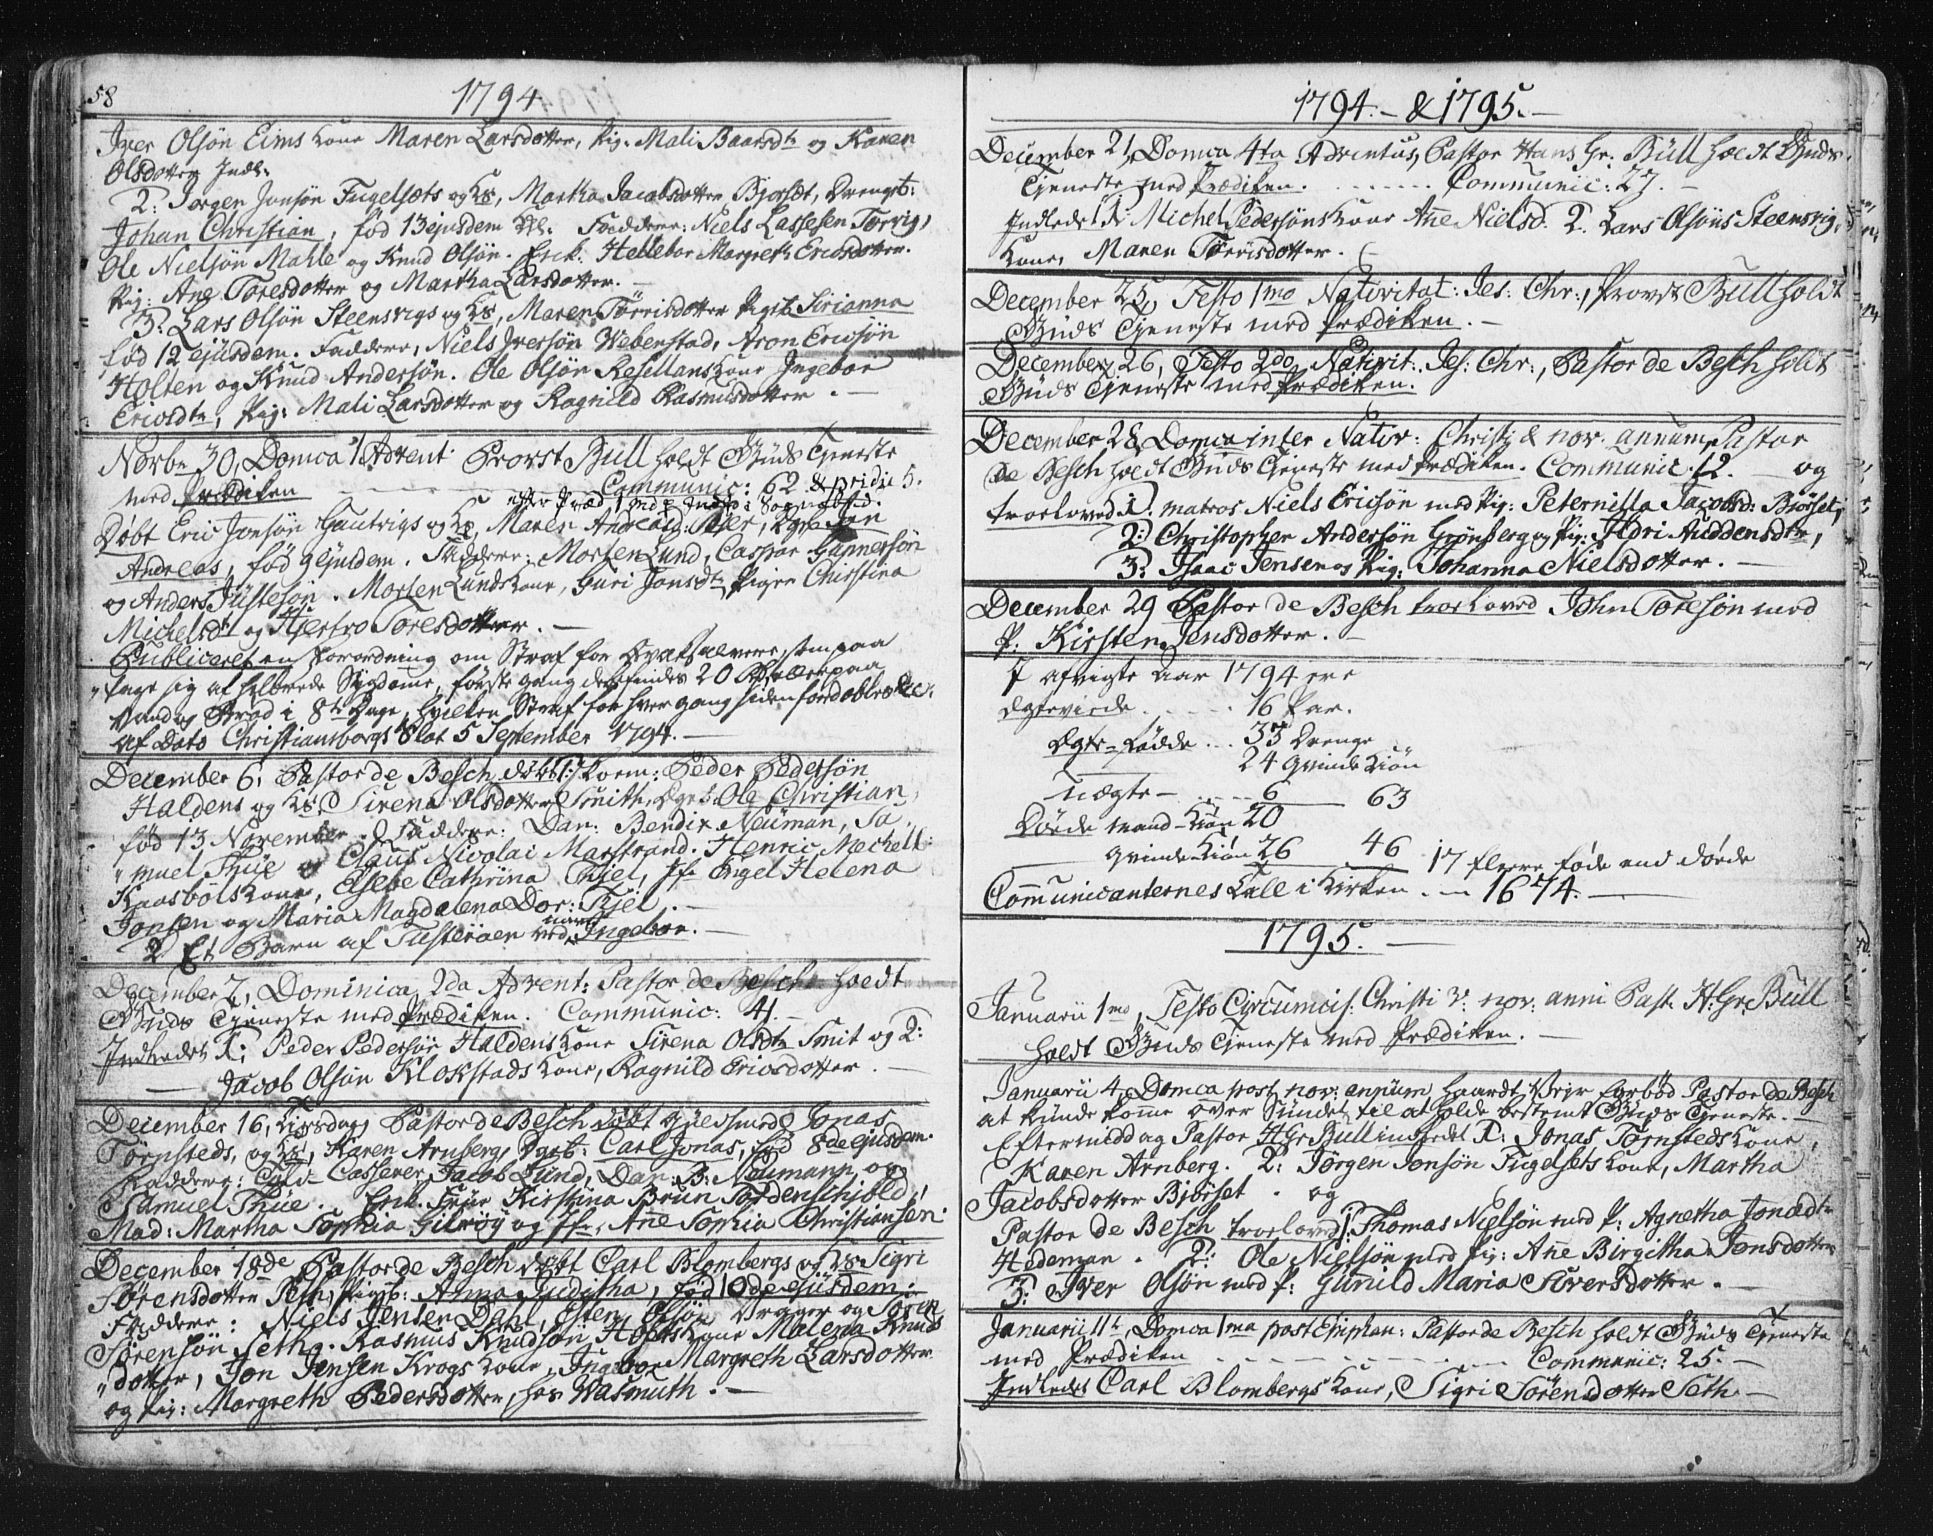 58
1794
Iver Olsøn Eims kone Maren Larsdotter, Pig. Mali Baarsdtr og Karen
Olsdotter Indl.
2: Jørgen Jonsøn Fugelsæts og Ks, Martha Jacobsdotter Bjorsæt, Drengb:
Johan Christian, fød 13 ejusdem. Faddere: Niels Lassesen Torvig,
Ole Nielsøn Mahle og Knud Olsøn. Erik. Hellebor Margreth Ericsdotter.
Pig: Ane Toresdotter og Martha Larsdotter.
3: Lars Olsøn Steensvigs og Ks, Maren Tørrisdotter Pigeb. Sirianna
fød 12 ejusdem. Faddere, Niels Iversøn Webenstad, Aron Ericsøn
Holten og Knud Andersøn. Ole Olsøn Resellans kone Ingebor
Ericsdtr, Pig: Mali Larsdotter og Ragnild Rasmusdotter.
Novbr 30, Domca 1 Advent. Provst Bull holdt Guds Tjeneste
med Prædiken Communic: 62 & pridie 5.
Døbt Eric Jonsøn Gautvigs og Ks, Maren Andreasd:
Andreas, fød 9 ejusdem. Faddere: Morten Lund, Caspar Gunnersøn
og Anders Justesøn. Morten Lunds kone, Guri Jonsdtr, Piger Christina
Michelsdtr og Toresdotter.
Publiceret en Forordning om Straf for Qvaksalvere, som paa
tage sig at helbrede Sygdome, første gang de findes 20 Rd eller paa
Vand og Brød i 8te Dage, hvilken Straf for hver gang siden fordobles etc.
af Dato Christiansborgs Slot 5 September 1794.
December 6, Pastor de Besch døbt: Peder Pedersøn
Haldens og Ks, Sirena Olsdotter Smith, Dgeb. Ole Christian,
fød 13 November. Faddere: Dan: Bendix Neuman, Sa,,
,,muel Thue og Claus Nicolai Marstrand. Henric Mechell:
Kaasbøls kone, Elsebe Cathrina Kjel, Jfr Engel Helena
Jonsen og Maria Magdalena Dor: Kjel.
2 Et Barn af Tusterøen ved navn Ingebor.
December 7, Dominica 2da Advent: Pastor de Besch holdt
Guds Tjeneste med Prædiken. Communic: 41.
Indledet K; Peder Pedersøn Haldens kone Sirena Olsdtr Smit og 2:
Jacob Olsøn Klokstads kone, Ragnild Ericsdotter.
December 16, Tirsdag Pastor de Besch døbt Guldsmed Jonas
Tørnsteds, og Ks, Karen Arnberg, Dgeb: Carl Jonas, fød 8de ejusdem.
Faddere: Casserer Jacob Lund, Dan: B: Neumann, og
Samuel Thue. Erik. Frue Kirstina Brun Tordenschjold,
Mad: Martha Sophia Gilrøy og Jfr. Anne Sophia Christiansen.
December 18de Pastor de Besch døbt Carl Blombergs og Ks Sigri
Sørensdotter Seth, Pigeb: Anna Juditha, fød 10de ejusdem.
Faddere: Niels Jensen Dahl, Esten Olsøn Vrager og Søren
Sørensøn Seth. Rasmus Knudsøn Hopens kone Malena Knuds
,,dotter, Jon Jensen Krogs kone, Ingebor Margreth Larsdotter
og Pig: Margreth Pedersdotter, hos Wasmuth.
1794.- & 1795.-
December 21, Domca 4ta Adventus, Pastor Hans Gr. Bull holdt Guds
Tjeneste med Prædiken. Communic: 27.
Indledet K: Michel Pedersøns kone Anne Nielsd. 2. Lars Olsøns Steensvig,
kone, Maren Tørrisdotter.
December 25, Festo 1mo Nativitat: Jes: Chr:, Provst Bull holdt
Guds Tjeneste med Prædiken.
December 26, Festo 2do Nativit. Jes: Chr:, Pastor de Besch holdt
Guds Tjeneste med Prædiken.
December 28, Domca inter Nativ: Christi & nov. annum, Pastor
de Besch holdt Guds Tjeneste med Prædiken. Communic. 12. og
troeloved 1. matros Niels Ericsøn med Pig: Peternilla Jacobsd: Bjørset,
2: Christopher Andersøn Grønberg og Pig: Hdri Auddensdtr,
3: Isaac Jensen og Pig: Johanna Nielsdotter.
December 29 Pastor de Besch troeloved John Toresøn med
P. Kirsten Jensdotter.
I afvigte Aar 1794 ere
Egteviede 16 Par.
Egte-Fødde 33 Drenge
24 Qvinde Kiøn
Uægte 6 63
Døde mand-Kiøn 20
Qvinde Kiøn 26 46 17 fleere føde end døde
Communicanternes Tall i Kirken 1674.
1795.
Januarii 1mo, Festo Circumcis. Christi & nov. anni Past. H. Gr. Bull
holdt Guds Tjeneste med Prædiken.
Januarii 4, Domca post nov: annum haardt Vejr forbød Pastor de Besch
at kunde komme over Sundet til at holde bestemt Guds Tjeneste.
Eftermiddag Pastor H Gr Bull indledet K: Jonas Tørnsteds kone,
Karen Arnberg. 2: Jørgen Jonsøn Fugelsets kone, Martha
Jacobsdotter Bjørset. og
Pastor de Besch troeloved 1: Thomas Nielsøn med P: Agnetha Jonædtr
Hedeman. 2: Ole Nielsøn med Pig: Anne Birgitha Jonsdotter
3: Iver Olsøn med P: Gunild Maria Siversdotter.
Januarii 11te, Domca 1ma post Epiphan: Pastor de Besch holdt Guds Tjeneste
med Prædiken Communic: 25.
Indledet Carl Blombergs kone, Sigri Sørensdotter Seth.